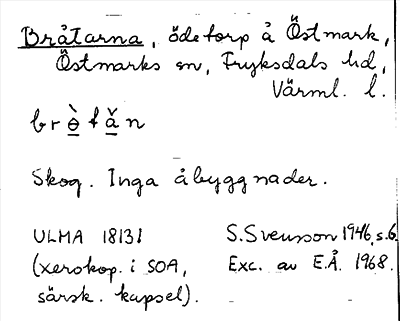 Bråtarna, ödetorp å Östmark,
Östmarks sn, Fryksdals hd,
Värml. l.
br è̱ t ǎ̱ n
Skog. Inga åbyggnader.
ULMA 18131 S. Svensson 1946, s. 6.
(xerokop. i SOA, Exc. av E.Å. 1968.
särsk. kapsel).